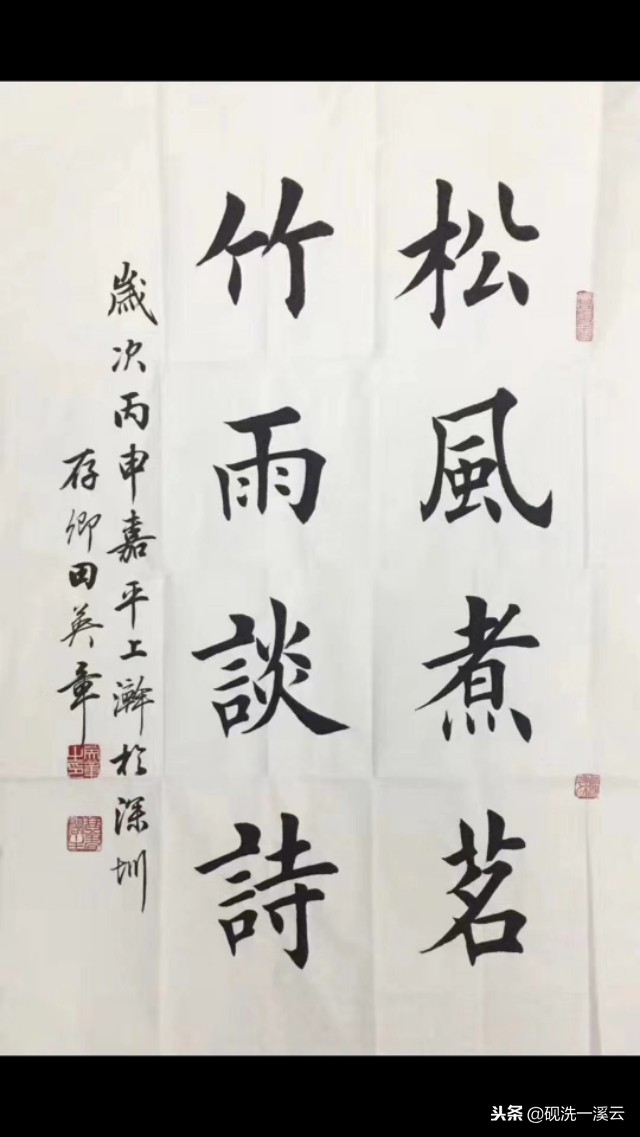 松風煮茗
竹雨談詩
歲次丙申嘉平上澣於深圳
存卿田英章
头条@砚洗一溪云